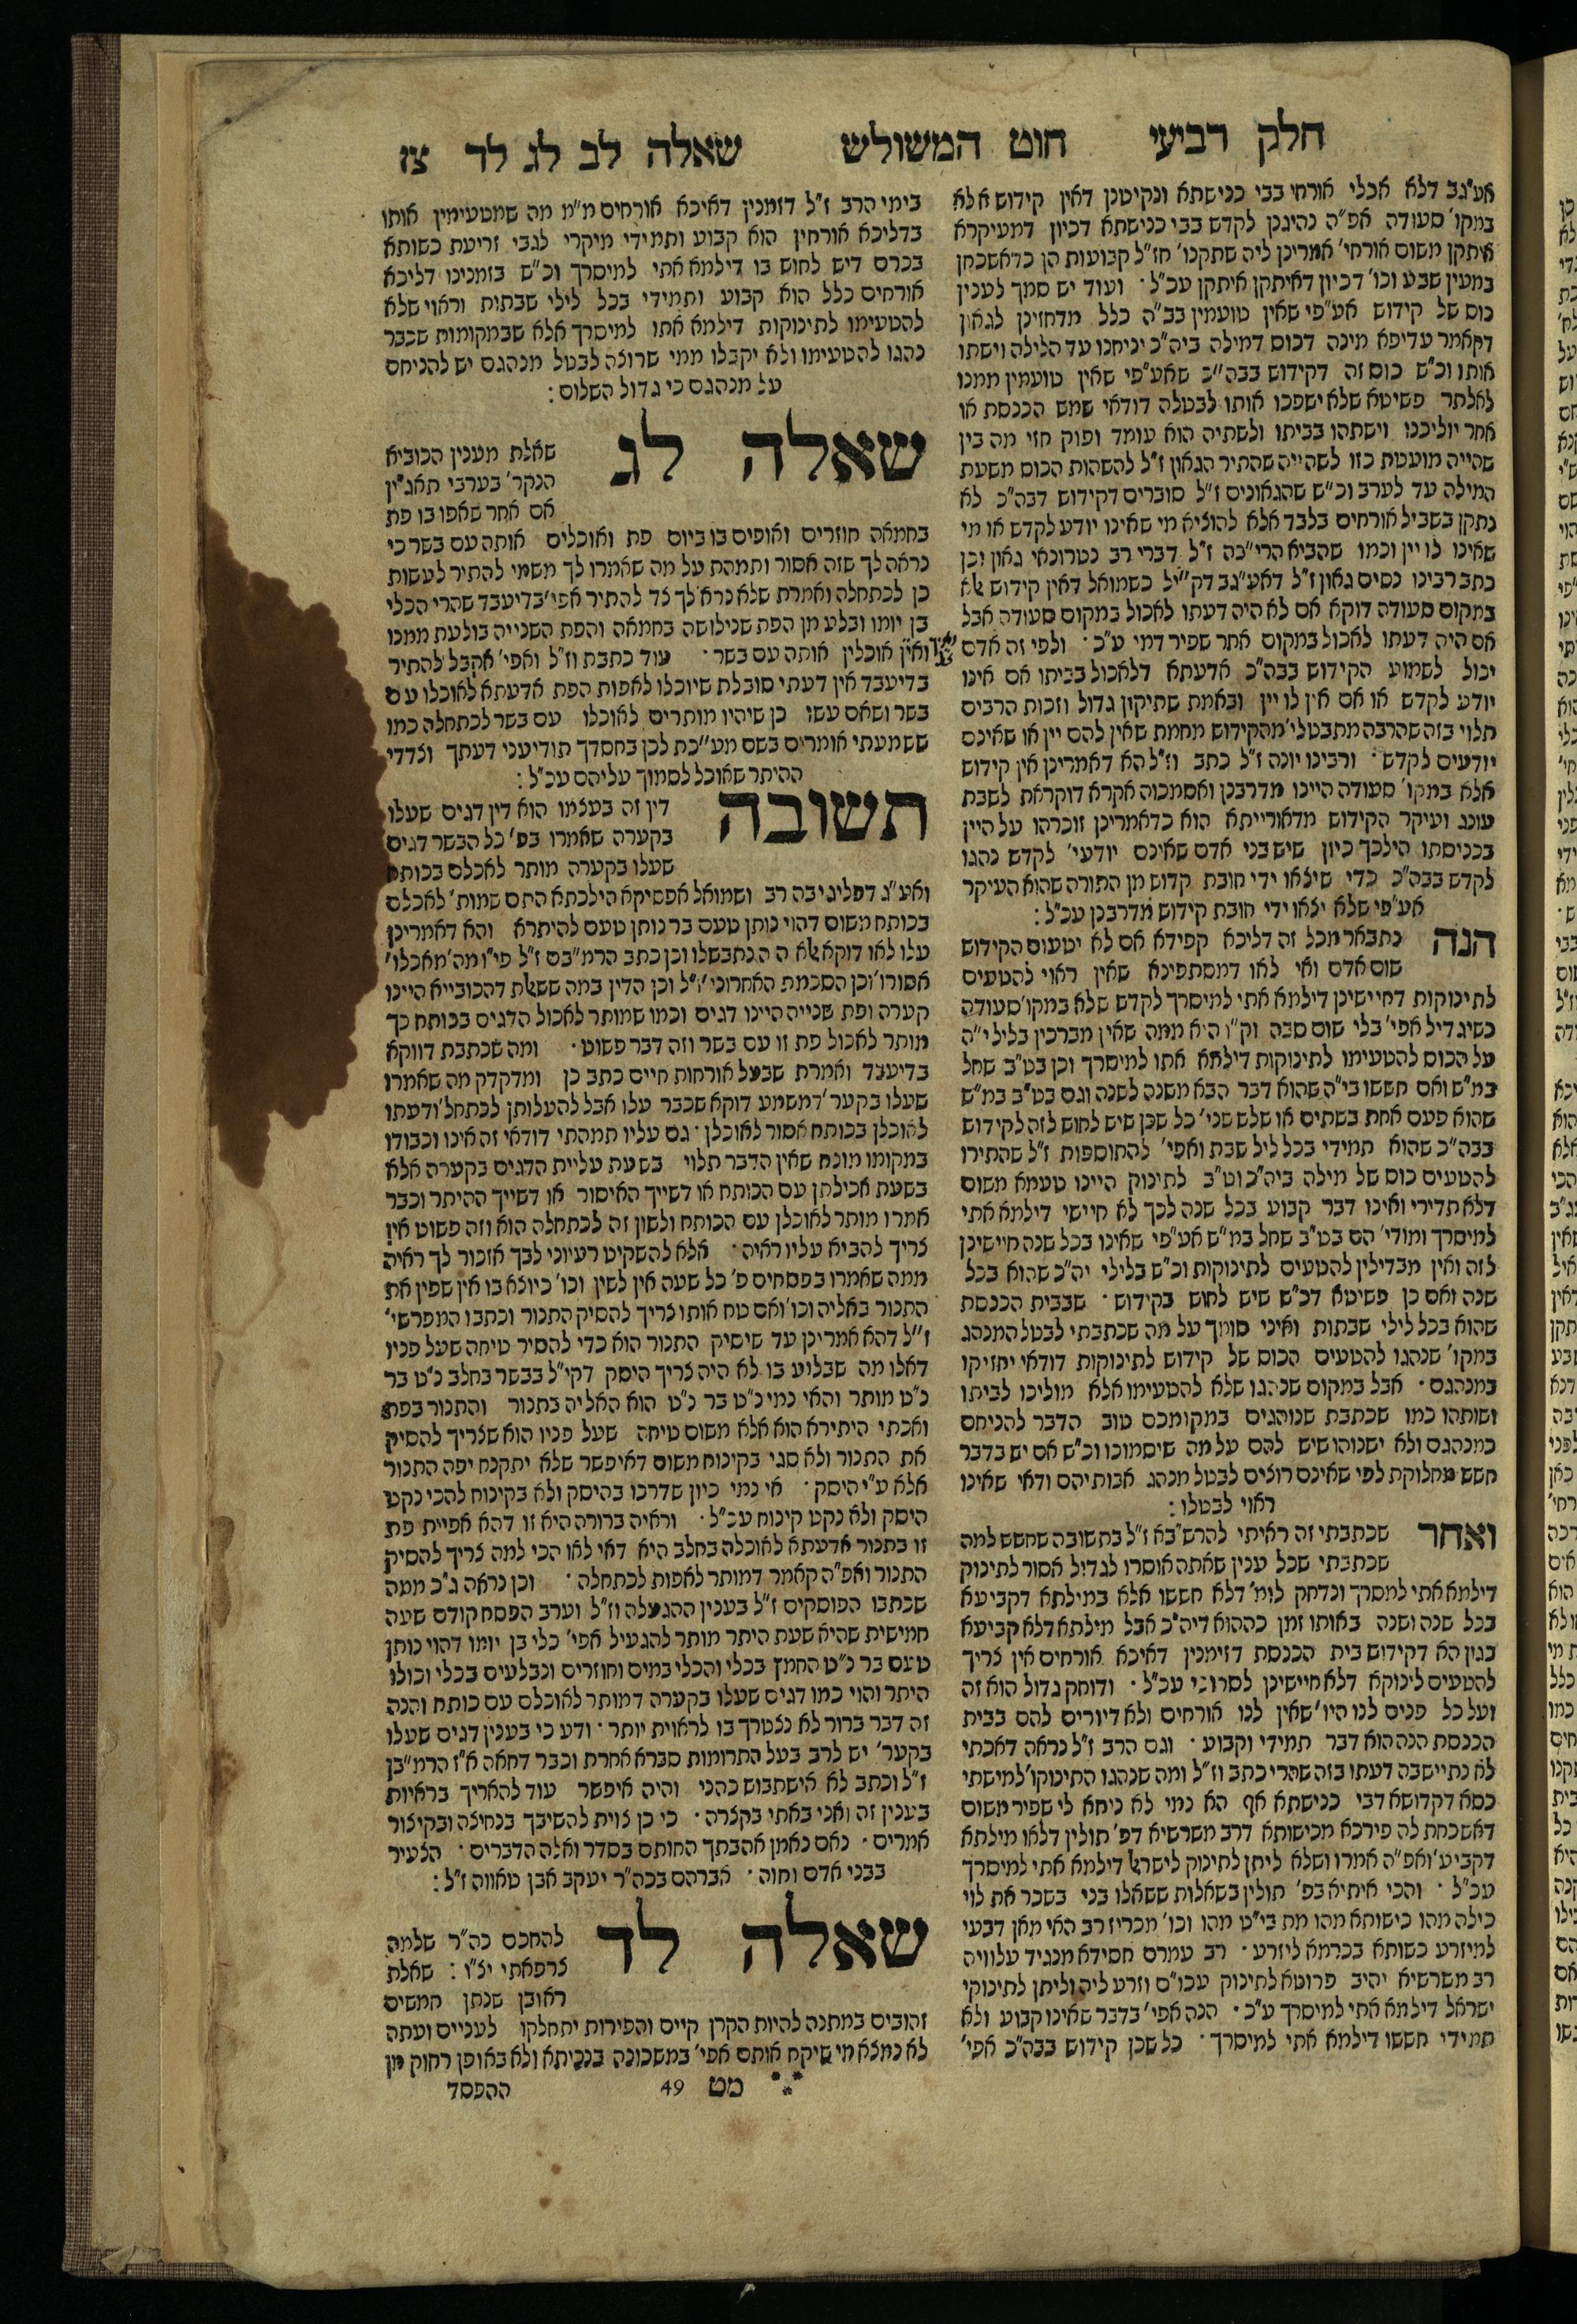 חלק רביעי חוט המשולש שאלה לב לג לד צז
אע״גב דלא אכלי אורחי בבי כנישתא ונקיטנן דאין קידוש אלא
במקו׳ סעודה אפ״ה נהיגנן לקדש בבי כנישתא דכיון דמעיקרא
איתקן משום אורחי׳ אמרינן ליה שתקנו׳ חז״ל קבועות הן כדאשכחן
במעין שבע וכו׳ דכיון דאיתקן איתקן עכ״ל · ועוד יש סמך לענין
כוס של קידוש אע״פי שאין טועמין בב״ה כלל מדחזינן לגאון
דקאמר עדיפא מינה דכוס דמילה ביה״כ יניחנו עד הלילה וישתו
אותו וכ״ש כוס זה דקידוש בבה״כ שאע״פי שאין טועמין ממנו
לאלתר פשיטא שלא ישפכו אותו לבטלה דודאי שמש הכנסת או
אחר יוליכנו וישתהו בביתו ולשתיה הוא עומד ופוק חזי מה בין
שהייה מועטת כזו לשהייה שהתיר הגאון ז״ל להשהות הכוס משעת
המילה עד לערב וכ״ש שהגאונים ז״ל סוברים דקידוש דבה״כ לא
נתקן בשביל אורחים בלבד אלא להוציא מי שאינו יודע לקדש או מי
שאינו לו יין וכמו שהביא הרי״בה ז״ל דברי רב נטרונאי גאון וכן
כתב רבינו נסים גאון ז״ל דאע״גב דק״יל כשמואל דאין קידוש אלא
במקום סעודה דוקא אם לא היה דעתו לאכול במקום סעודה אבל
אם היה דעתו לאכול במקום אחר שפיר דמי ע״כ · ולפי זה אדם
יכול לשמוע הקידוש בבה״כ אדעתא דלאכול בביתו אם אינו
יודע לקדש או אם אין לו יין ובאמת שתיקון גדול וזכות הרבים
תלוי בזה שהרבה מתבטלי׳ מהקידוש מחמת שאין להם יין או שאינם
יודעים לקדש · ורבינו יונה ז״ל כתב וז״ל הא דאמרינן אין קידוש
אלא במקו׳ סעודה היינו מדרבנן ואסמכוה אקרא דוקראת לשבת
עונג ועיקר הקידוש מדאורייתא הוא כדאמרינן זוכרהו על היין
בכניסתו הילכך כיון שיש בני אדם שאינם יודעי׳ לקדש נהגו
לקדש בבה״כ כדי שיצאו ידי חובת קדוש מן התורה שהוא העיקר
אע״פי שלא יצאו ידי חובת קידוש מדרבנן עכ״ל :
הנה נתבאר מכל זה דליכא קפידא אם לא יטעום הקידוש
שום אדם ואי לאו דמסתפינא שאין ראוי להטעים
לתינוקות דחיישינן דילמא אתי למיסרך לקדש שלא במקו׳ סעודה
כשיגדיל אפי׳ בלי שום סבה וק״ו היא ממה שאין מברכין בליל י״ה
על הכוס להטעימו לתינוקות דילמא אתו למיסרך וכן בט״ב שחל
במ״ש ואם חששו בי״ה שהוא דבר הבא משנה לשנה וגם בט״ב במ״ש
שהוא פעם אחת בשתים או שלש שני׳ כל שכן שיש לחוש לזה לקידוש
בבה״כ שהוא תמידי בכל ליל שבת ואפי׳ להתוספות ז״ל שהתירו
להטעים כוס של מילה ביה״כ וט״ב לתינוק היינו טעמא משום
דלא תדירי ואינו דבר קבוע בכל שנה לכך לא חיישי דילמא אתי
למיסרך ומודי׳ הם בט״ב שחל במ״ש אע״פי שאינו בכל שנה חיישינן
לזה ואין מבדילין להטעים לתינוקות וכ״ש בלילי יה״כ שהוא בכל
שנה ואם כן פשיטא דכ״ש שיש לחוש בקידוש · שבבית הכנסת
שהוא בכל לילי שבתות ואיני סומך על מה שכתבתי לבטל המנהג
במקו׳ שנהגו להטעים הכוס של קידוש לתינוקות דודאי יחזיקו
במנהגם · אבל במקום שנהגו שלא להטעימו אלא מוליכו לביתו
ושותהו כמו שכתבת שנוהגים במקומכם טוב הדבר להניחם
במנהגם ולא ישנוהו שיש להם על מה שיסמוכו וכ״ש אם יש בדבר
חשש מחלוקת לפי שאינם רוצים לבטל מנהג אבותיהם ודאי שאינו
ראוי לבטלו :
ואחר שכתבתי זה ראיתי להרש״בא ז״ל בתשובה שחשש למה
שכתבתי שכל ענין שאתה אוסרו לגדיל אסור לתינוק
דילמא אתי למסרך ונדחק לומ׳ דלא חששו אלא במילתא דקביעא
בכל שנה ושנה באותו זמן כההוא דיה״כ אבל מילתא דלא קביעא
כגון הא דקידוש בית הכנסת דזימנין דאיכא אורחים אין צריך
להטעים לינוקא דלא חיישינן לסרוכי עכ״ל · ודוחק גדול הוא זה
ועל כל פנים לנו היו׳ שאין לנו אורחים ולא דיורים להם בבית
הכנסת הנה הוא דבר תמידי וקבוע · וגם הרב ז״ל נראה דאכתי
לא נתיישבה דעתו בזה שהרי כתב וז״ל ומה שנהגו התינוקו׳ למישתי
כסא דקדושא דבי כנישתא אף הא נמי לא ניחא לי שפיר משום
דאשכחת לה פירכא מכישותא דרב משרשיא דפ׳ תולין דלאו מילתא
דקביע׳ ואפ״ה אמרו ושלא ליתן לתינוק לישראל דילמא אתי למיסרך
עכ״ל · והכי איתיא בפ׳ תולין בשאלות ששאלו בני בשכר את לוי
כילה מהו כישותא מהו מת בי״ט מהו וכו׳ מכריז רב האי מאן דבעי
למיזרע כשותא בכרמא ליזרע · רב עמרם חסידא מנגיד עלוויה
רב משרשיא יהיב פרוטא לתינוק עכו״ם וזרע ליה וליתן לתינוקי
ישראל דילמא אתי למיסרך ע״כ · הנה אפי׳ בדבר שאינו קבוע ולא
תמידי חששו דילמא אתי למיסרך · כל שכן קידוש בבה״כ אפי׳
בימי הרב ז״ל דזמנין דאיכא אורחים מ״מ מה שמטעימין אותו
בדליכא אורחין הוא קבוע ותמידי מיקרי לגבי זריעת כשותא
בכרם דיש לחוש בו דילמא אתי למיסרך וכ״ש בזמנינו דליכא
אורחים כלל הוא קבוע ותמידי בכל לילי שבתות וראוי שלא
להטעימו לתינוקות דילמא אתו למיסרך אלא שבמקומות שכבר
נהגו להטעימו ולא יקבלו ממי שרוצה לבטל מנהגם יש להניחם
על מנהגם כי גדול השלום :
שאלה לג שאלת מענין הכוביא
הנקר׳ בערבי תאג״ין
אם אחר שאפו בו פת
בחמאה חוזרים ואופים בו ביום פת ואוכלים אותה עם בשר כי
נראה לך שזה אסור ותמהת על מה שאמרו לך משמי להתיר לעשות
כן לכתחלה ואמרת שלא נרא׳ לך צד להתיר אפי׳ בדיעבד שהרי הכלי
בן יומו ובלע מן הפת שנילושה בחמאה והפת השנייה בולעת ממנו
ואין אוכלין אותה עם בשר · עוד כתבת וז״ל ואפי׳ אקבל להתיר
בדיעבד אין דעתי סובלת שיוכלו לאפות הפת אדעתא לאוכלו עם
בשר ושאם עשו כן שיהיו מותרים לאוכלו עם בשר לכתחלה כמו
ששמעתי אומרים בשם מע״כת לכן בחסדך תודיעני דעתך וצדדי
ההיתר שאוכל לסמוך עליהם עכ״ל :
תשובה דין זה בעצמו הוא דין דגים שעלו
בקערה שאמרו בפ׳ כל הבשר דגים
שעלו בקערה מותר לאכלם בכותח
ואע״ג דפליגי בה רב ושמואל אפסיקא הילכתא התם שמות׳ לאכלם
בכותח משום דהוי נותן טעם בר נותן טעם להיתרא והא דאמרינן
עלו לאו דוקא אלא ה הנתבשלו וכן כתב הרמ״בם ז״ל פי״ו מה׳ מאכלו׳
אסורו׳ וכן הסכמת האחרוני׳ ז״ל וכן הדין במה ששאלת דהכובייא היינו
קערה ופת שנייה היינו דגים וכמו שמותר לאכול הדגים בכותח כך
מותר לאכול פת זו עם בשר וזה דבר פשוט · ומה שכתבת דווקא
בדיעבד ואמרת שבעל אורחות חיים כתב כן ומדקדק מה שאמרו
שעלו בקער׳ דמשמע דוקא שכבר עלו אבל להעלותן לכתחל׳ ודעתו
לאוכלן בכותח אסור לאוכלן · גם עליו תמהתי דודאי זה אינו וכבודו
במקומו מונח שאין הדבר תלוי בשעת עליית הדגים בקערה אלא
בשעת אכילתן עם הכותח או דשייך האיסור או דשייך ההיתר וכבר
אמרו מותר לאוכלן עם הכותח ולשון זה לכתחלה הוא וזה פשוט אין
צריך להביא עליו ראיה · אלא להשקיט רעיוני לבך אזכור לך ראיה
ממה שאמרו בפסחים פ׳ כל שעה אין לשין וכו׳ כיוצא בו אין שפין את
התנור באליה וכו׳ ואם טח אותו צריך להסיק התנור וכתבו המפרשי׳
ז״ל דהא אמרינן עד שיסיק התנור הוא כדי להסיר טיחה שעל פניו
דאלו מה שבלוע בו לא היה צריך היסק דקי״ל בבשר בחלב נ״ט בר
נ״ט מותר והאי נמי נ״ט בר נ״ט הוא האליה בתנור והתנור בפת
ואכתי היתירא הוא אלא משום טיחה שעל פניו הוא שצריך להסיק
את התנור ולא סגי בקינוח משום דאיפשר שלא יתקנח יפה התנור
אלא ע״י היסק · אי נמי כיון שדרכו בהיסק ולא בקינוח להכי נקט
היסק ולא נקט קינוח עכ״ל · וראיה ברורה היא זו דהא אפיית פת
זו בתנור אדעתא לאוכלה בחלב היא דאי לאו הכי למה צריך להסיק
התנור ואפ״ה קאמר דמותר לאפות לכתחלה · וכן נראה ג״כ מעה
שכתבו הפוסקים ז״ל בענין ההגעלה וז״ל וערב הפסח קודם שעה
חמישית שהיא שעת היתר מותר להגעיל אפי׳ כלי בן יומו דהוי נותן
טעם בר נ״ט החמץ בכלי והכלי במים וחוזרים ונבלעים בכלי וכולו
היתר והוי כמו דגים שעלו בקערה דמותר לאוכלם עם כותח והנה
זה דבר ברור לא נצטרך בו לראיות יותר · ודע כי בענין דגים שעלו
בקער׳ יש לרב בעל התרומות סברא אחרת וכבר דחאה א״ז הרמ״בן
ז״ל וכתב לא אישתבוש כהני והיה איפשר עוד להאריך בראיות
בענין זה ואני באתי בקצרה · כי כן צוית להשיבך בנחיצה ובקיצור
אמרים · נאם נאמן אהבתך החותם בסדר ואלה הדברים · הצעיר
בבני אדם וחוה · אברהם בכה״ר יעקב אבן טאווה ז״ל :
שאלה לד להחכם כה״ר שלמה
צרפאתי יצ״ו : שאלת
ראובן שנתן חמשים
זהובים במתנה להיות הקרן קיים והפירות יתחלקו לעניים ועתה
לא נמצא מי שיקח אותם אפי׳ במשכונה בנכיתא ולא באופן רחוק מן
מט 49 ההפסד